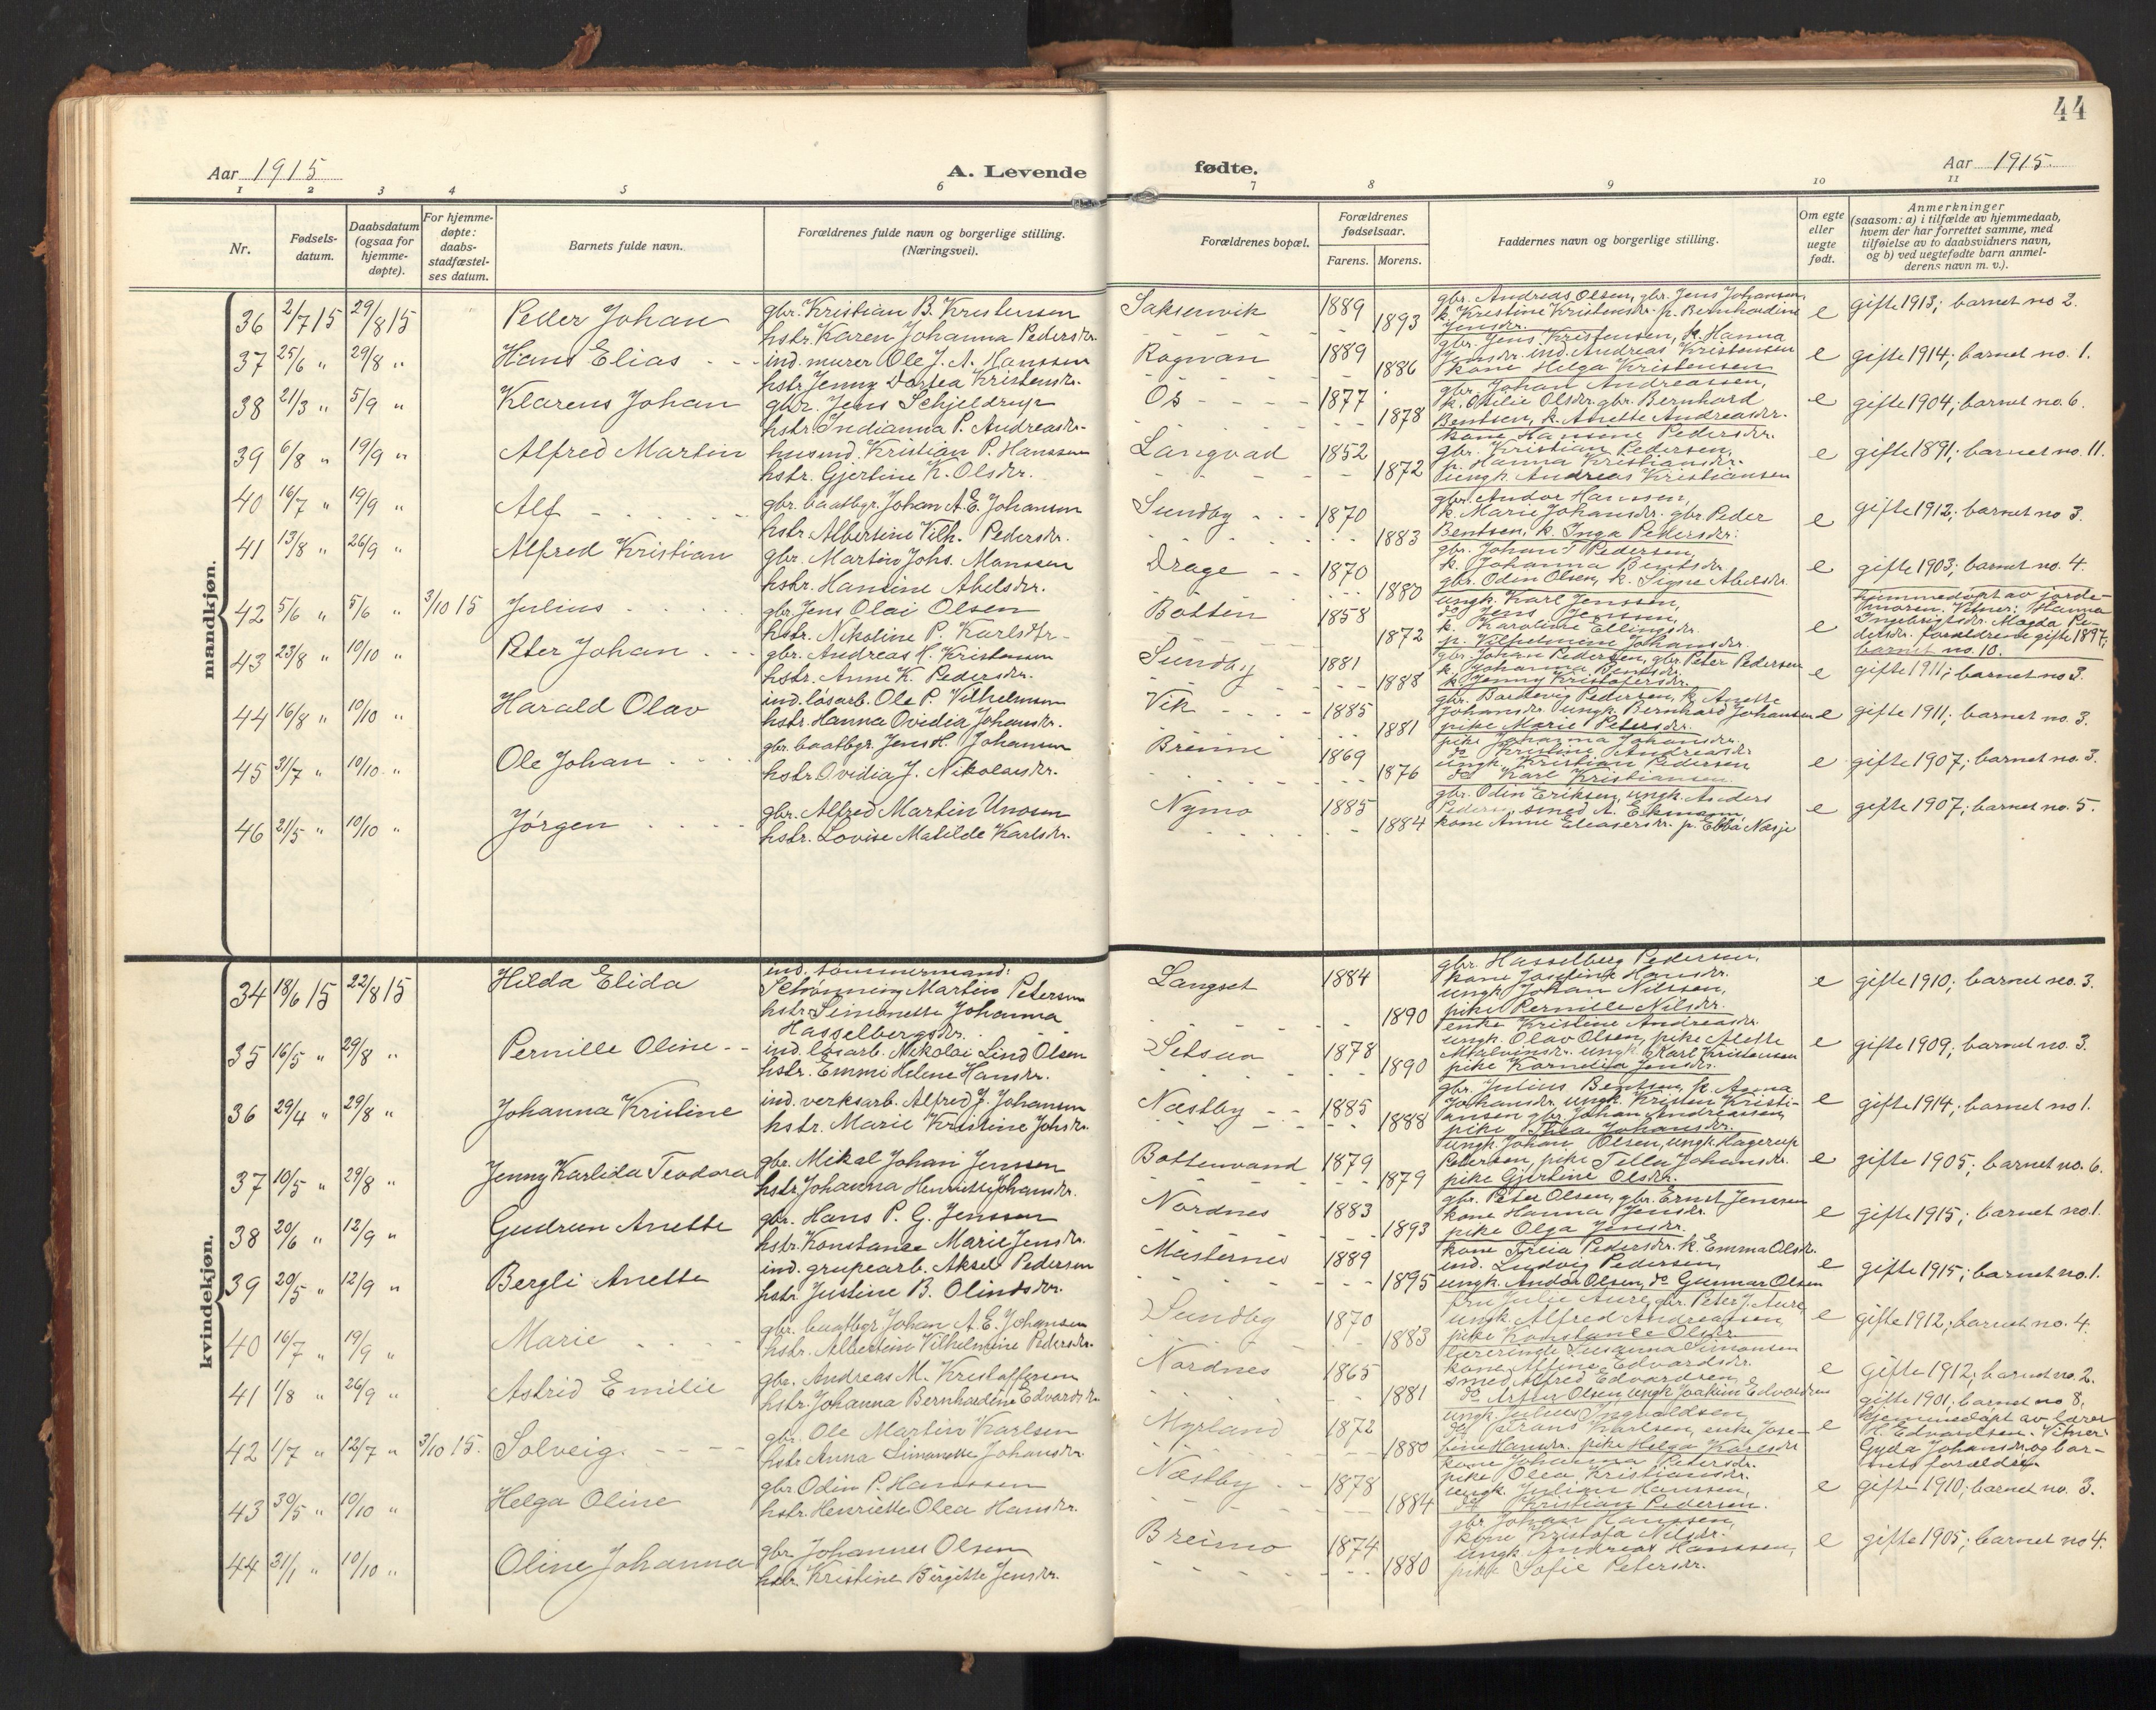 44
Aar 1915
A. Levende
fødte.
Aar 1915
1 2 3 4 5 6 7 8 9 10 11
Nr.
Fødsels-
datum.
Daabsdatum
(ogsaa for
hjemme-
døpte).
For hjemme-
døpte:
daabs-
stadfæstel-
ses datum.
Barnets fulde navn.
Forældrenes fulde navn og borgerlige stilling.
(Næringsvei).
Forældrenes bopæl.
Forældrenes
fødselsaar.
Farens. Morens.
Faddernes navn og borgerlige stilling.
Om egte
eller
uegte
født.
Anmerkninger
(saasom: a) i tilfælde av hjemmedaab,
hvem der har forrettet samme, med
tilføielse av to daabsvidners navn,
og b) ved uegtefødte barn anmel-
derens navn m. v.).
mandkjøn.
36 2/7 15 29/8 15 Peder Johan gbr. Kristian B. Kristensen Saksenvik 1889 gbr. Andreas Olsen, gbr. Jens Johansen, e gifte 1913; barnet no 2.
hstr. Karen Johanna Pedersdr. 1893 k. Kristine Kristensdr. p. Bernhardine
Jensdr.
37 25/6 " 29/8 " Hans Elias ind. murer Ole J. A. Hanssen Rognan 1889 gbr. Jens Kristensen, k. Hanna e gifte 1914; barnet no. 1.
hstr. Jenny Dortea Kristensdr. 1886 Jensdr. ind. Andreas Kristensen
kone Helga Kristensen
38 21/3 " 5/9 " Klarens Johan gbr. Jens Schjeldrup Os 1877 gbr. Johan Andreassen, e gifte 1904; barnet no. 6.
hstr. Indianna P. Andreasdr. 1878 k. Otilie Olsdr. gbr. Bernhard
Bentsen, k. Anette Andreasdr.
39 6/8 " 19/9 " Alfred Martin husmd. Kristian P. Hanssen Langvad 1852 kone Hansine Pedersdr. e gifte 1891; barnet no. 11.
hstr. Gjertine K. Olsdr. 1872 gbr. Kristian Pedersen,
p. Hanna Kristiansdr.
ungk. Andreas Kristiansen
40 16/7 " 19/9 " Alf gbr. baatbgr. Johan A. E. Johansen Sundby 1870 gbr. Andor Hanssen, e gifte 1912; barnet no 3.
hstr. Albertine Vilh. Pedersdr. 1883 k. Marie Johansdr. gbr. Peder
Bentsen, k. Inga Pedersdr.
41 13/8 " 26/9 " Alfred Kristian gbr. Martin Johs. Monsen Drage 1870 gbr. Johan T Pedersen, e gifte 1903; barnet no. 4.
hstr. Hansine Abelsdr. 1880 k. Johanna Bentsdr.
gbr. Odin Olsen, k. Signe Abelsdr.
42 5/6 " 5/6 " 3/10 15 Julius gbr. Jens Olai Olsen Botten 1858 ungk. Karl Jenssen, e hjemmedøpt av jorde-
hstr. Nikoline P. Karlsdtr. 1872 do Jens Jenssen, moren. Vitner: Hanna
k. Karoline Ellingsdr. Ingebrigtsdr. Magda Pe-
p. Vilhelmine Johansdr. dersdr. forældrene gifte 1897;
barnet no. 10.
43 23/8 " 10/10 " Peter Johan gbr. Andreas H. Kristensen Sundby 1881 gbr. Johan Pedersen, gbr. Peter Pedersen e gifte 1911; barnet no 3.
hstr. Anne K. Pedersdr. 1888 k. Johanna Bentsdr.
k. Jenny Kristofersdr.
44 16/8 " 10/10 " Harald Olav ind. løsarb. Ole P. Vilhelmsen Vik 1885 gbr. Bardevig Pedersen, k. Anette e gifte 1911; barnet no. 3.
hstr. Hanna Ovidia Johansdr. 1881 Johansdr. ungk. Bernhard Johansen
pike Marie Petersdr.
45 31/7 " 10/10 " Ole Johan gbr. baatbgr. Jens H. Johansen Breime 1869 pike Johanna Johansdr. e gifte 1907; barnet no. 3.
hstr. Ovidia J. Nikolaisdr. 1876 do Kristine Andreasdr.
ungk. Kristian Pedersen
do Karl Kristiansen
46 21/5 " 10/10 " Jørgen gbr. Alfred Martin Unosen Nymo 1885 gbr. Odin Eriksen, ungk. Anders e gifte 1907; barnet no. 5.
hstr. Lovise Matilde Karlsdr. 1884 Pedersen, smed A. Ekmann,
kone Anne Eleasersdr. p. Ebba Næsje
kvindekjøn.
34 18/6 15 22/8 15 Hilda Elida ind. tømmermand: Langset 1884 gbr. Hasselberg Pedersen, e gifte 1910; barnet no. 3.
Schønning Martin Petersen 1890 kone Josefine Hansdr.
hstr. Simonette Johanna ungk. Johan Nilssen,
Hasselbergsdr. pike Pernille Nilsdr.
35 16/5 " 29/8 " Pernille Oline ind. løsarb. Nikolai Lind Olsen Setsaa 1878 enke Kristine Andreasdr. e gifte 1909; barnet no. 3.
hstr. Emmi Helene Hansdr. 1890 ungk. Olav Olsen, pike Alette
Malvinsdr. ungk. Karl Kristensen
pike Kornelia Jensdr.
36 29/4 " 29/8 " Johanna Kristine ind. verksarb. Alfred J. Johansen Næstby 1885 gbr. Julius Bentsen, k. Anna e gifte 1914; barnet no 1.
hstr. Marie Kristine Johsdr. 1888 Johansdr. ungk. Kristen Kristi-
ansen gbr. Johan Andreassen,
pike Thea Johansdr.
37 10/5 " 29/8 " Jenny Karlida Teodora gbr. Mikal Johan Jenssen Bottenvand 1879 ungk. Johan Olsen, ungk. Hagerup e gifte 1905; barnet no. 6.
hstr. Johanna Henriette Johansdr. 1879 Petersen, pike Tella Johansdr.
pike Gjertine Olsdr.
38 20/6 " 12/9 " Gudrun Anette gbr. Hans P. G. Jenssen Nordnes 1883 gbr. Peter Olsen, gbr. Ernst Jenssen e gifte 1915; barnet no. 1.
hstr. Konstance Marie Jensdr. 1893 kone Hanna Jensdr.
pike Olga Jensdr.
39 20/5 " 12/9 " Bergli Anette ind. grupearb. Aksel Pedersen Masternes 1889 kone Freia Pedersdr. k. Emma Olsdr. e gifte 1915; barnet no. 1.
hstr. Justine B. Olindsdr. 1895 ind. Ludvig Pedersen,
ungk. Andor Olsen, do Gunnar Olsen
40 16/7 " 19/9 " Marie gbr. baatbgr Johan A. E. Johansen Sundby 1870 fru Julie Aure, gbr. Peter J. Aure, e gifte 1912; barnet no. 4.
hstr. Albertine Vilhelmine Pedersdr. 1883 ungk. Alfred Andreassen,
pike Konstance Olsdr.
lærerinde Susanna Simonsen
41 1/8 " 26/9 " Astrid Emilie gbr. Andreas M. Kristoffersen Nordnes 1865 kone Alfine Edvardsdr. e gifte 1912; barnet no. 2.
hstr. Johanna Bernhardine Edvardsdr. 1881 smed Alfred Edvardsen,
do Artur Olsen, ungk. Joakim Edvardsen
42 1/7 " 12/7 " 3/10 15. Solveig. gbr. Ole Martin Karlsen Myrland 1872 ungk. Julius Ingvaldsen, e gifte 1901; barnet no 8.
hstr. Anna Simonette Johansdr. 1880 do Petrons Karlsen, enke Jose- hjemmedøpt av lærer
fine Hansdr. pike Helga Karlsdr. H. Edvardsen. Vitner:
Gyda Johansdr. og bar-
nets forældre.
43 30/5 " 10/10 " Helga Oline gbr. Odin P. Hanssen Næstby 1878 kone Johanna Petersdr. e gifte 1910; barnet no. 3.
hstr. Henriette Olea Hansdr. 1884 pike Olea Kristiansdr.
ungk. Julius Hanssen,
do Kristian Pedersen.
44 31/1 " 10/10 " Oline Johanna gbr. Johannes Olsen Breimo 1874 gbr. Johan Hanssen, e gifte 1905; barnet no 4.
hstr. Kristine Birgitte Jensdr. 1880 kone Kristofa Nilsdr.
ungk. Andreas Hanssen,
pike Sofie Petersdr.